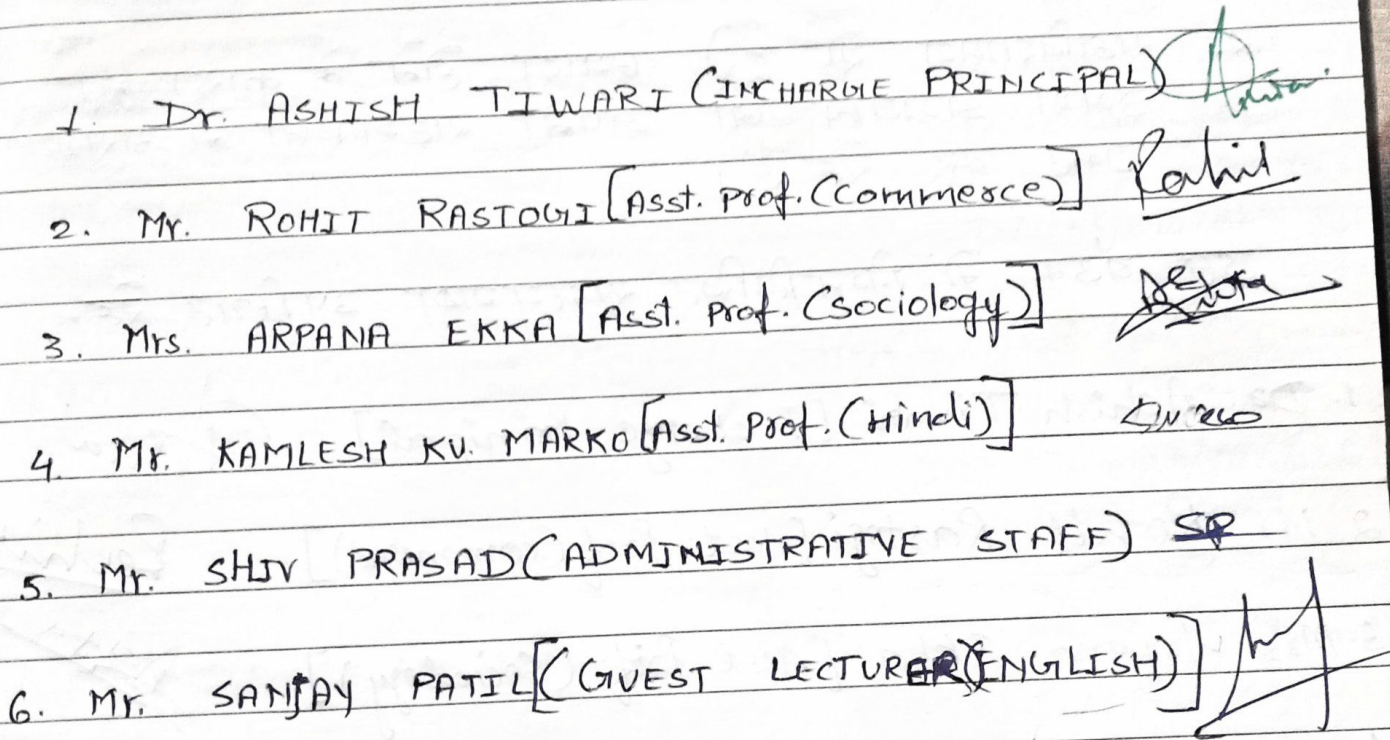 1. Dr. ASHISH TIWARI (INCHARGE PRINCIPAL)
2. Mr. ROHIT RASTOGI [Asst. Prof. (Commerce)] Rohit
3. Mrs. ARPANA EKKA [Asst. Prof. (Sociology)]
4. Mr. KAMLESH KU. MARKO [Asst. Prof. (Hindi)]
5. Mr. SHIV PRASAD (ADMINISTRATIVE STAFF) SP
6. Mr. SANJAY PATIL [(GUEST LECTURER (ENGLISH)]